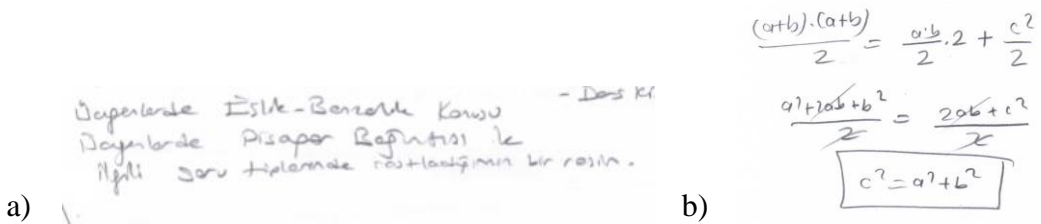 Üçgenlerde Eşlik-Benzerlik Konusu - Ders Ki
Üçgenlerde Pisagor Bağıntısı ile
ilgili soru tiplerinde rastladığımın bir resim.
a)
(a+b).(a+b)/2 = a.b/2 .2 + c²/2
a²+2ab+b²/2 = 2ab+c²/2
c²=a²+b²
b)